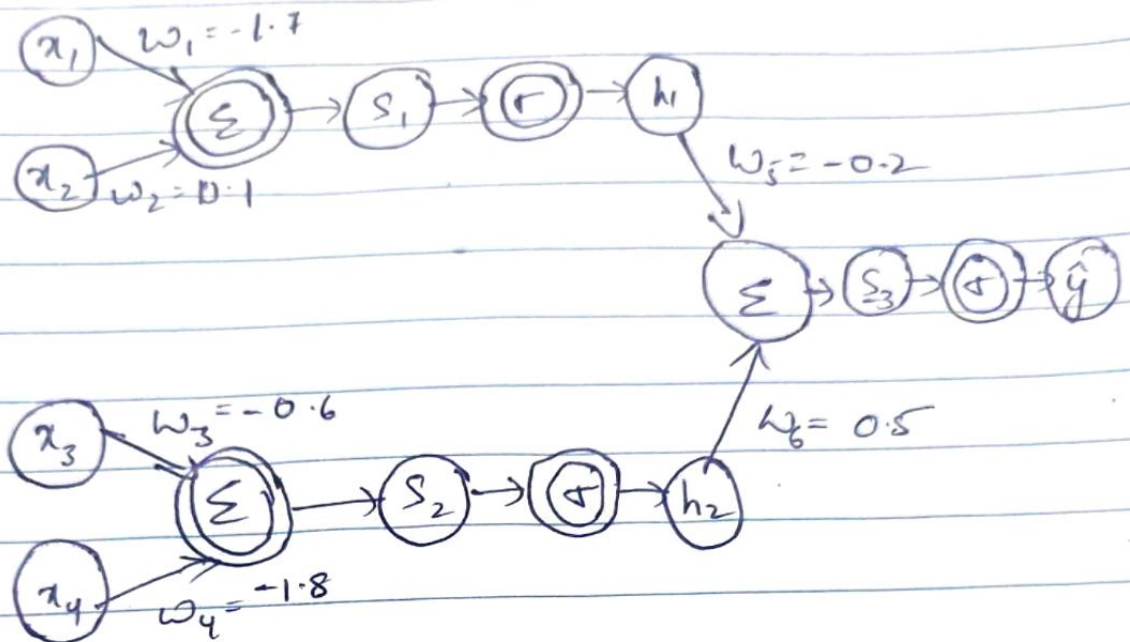 x₁ w₁ = -1.7
Σ S₁ σ h₁
x₂ w₂ = 0.1
w₅ = -0.2
Σ S₃ σ ŷ
x₃ w₃ = -0.6
w₆ = 0.5
Σ S₂ σ h₂
x₄ w₄ = -1.8